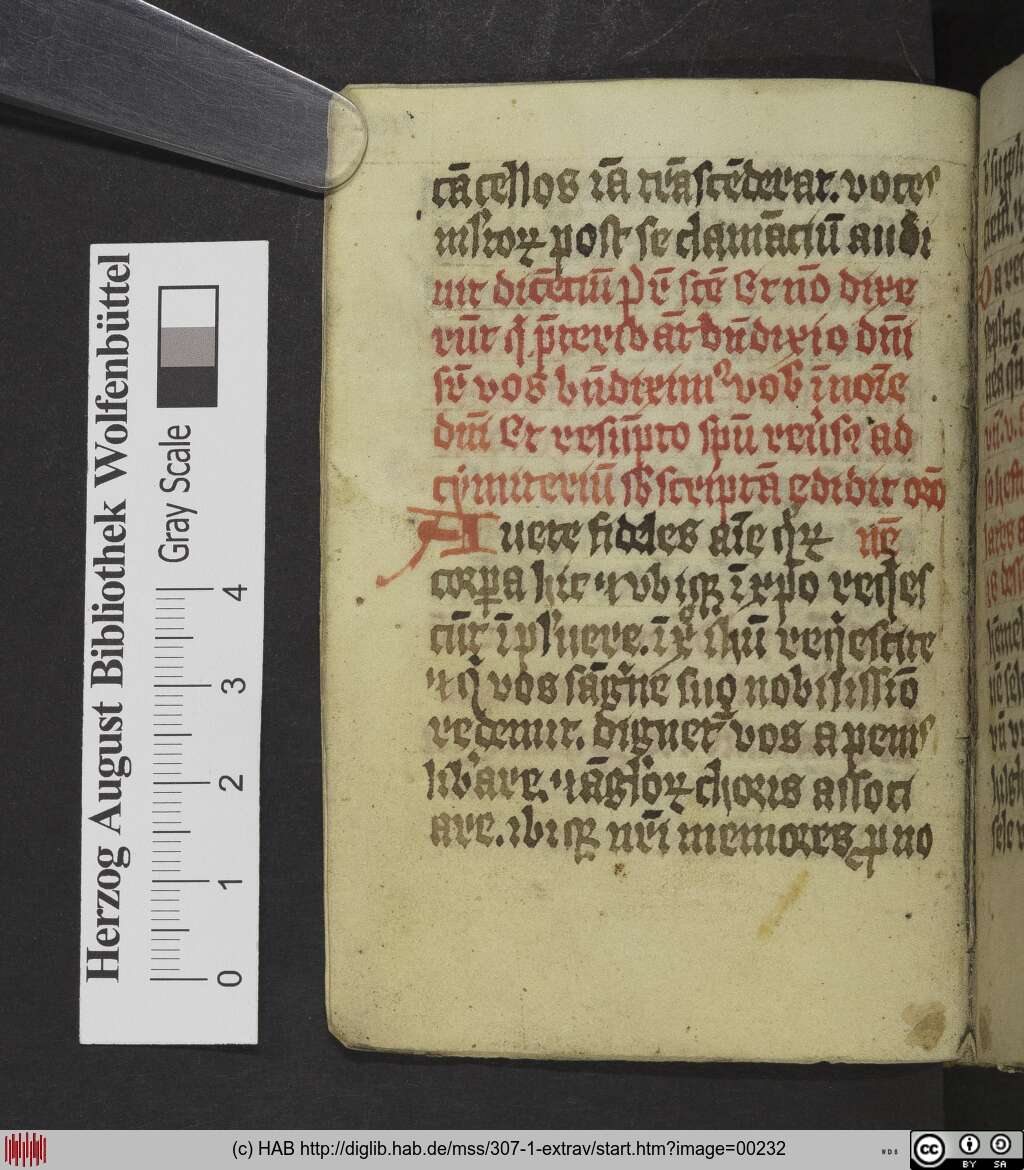 cācellos iā trāscēderat. voces
mstoꝝ post se clamāciū audi
uit dicēciū p̄r̄ scē Et nō dixe
rūt q̇ p̄teribāt bn̄dixio dn̄i
sr̄ vos bn̄diximꝰ vob̄ ī noīe
dn̄i Et resūpto spū reūsꝰ ad
cymiteriū sb̄scriptā edidit orō
Auete fideles aīe qr̄ꝝ nē
corpa hic ⁊ vbiqꝫ ī xp̄o reqͥes
cūt ī pluere. ī xͦ ihū reqͥescite
⁊ qͥ vos sāgͥne suo nobilissīo
redemit. dignet̄ vos a penis
lib̄are. ⁊ āgl̓oꝝ choris associ
are. ibiqꝫ nr̄i memores p no
Herzog August Bibliothek Wolfenbüttel
Gray Scale
0 1 2 3 4
(c) HAB http://diglib.hab.de/mss/307-1-extrav/start.htm?image=00232
cc BY SA